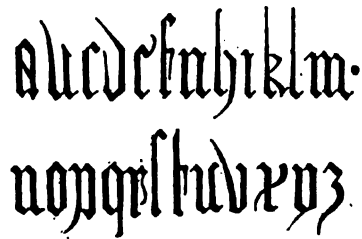 abcdefghiklm.
nopqrſtuvxyz